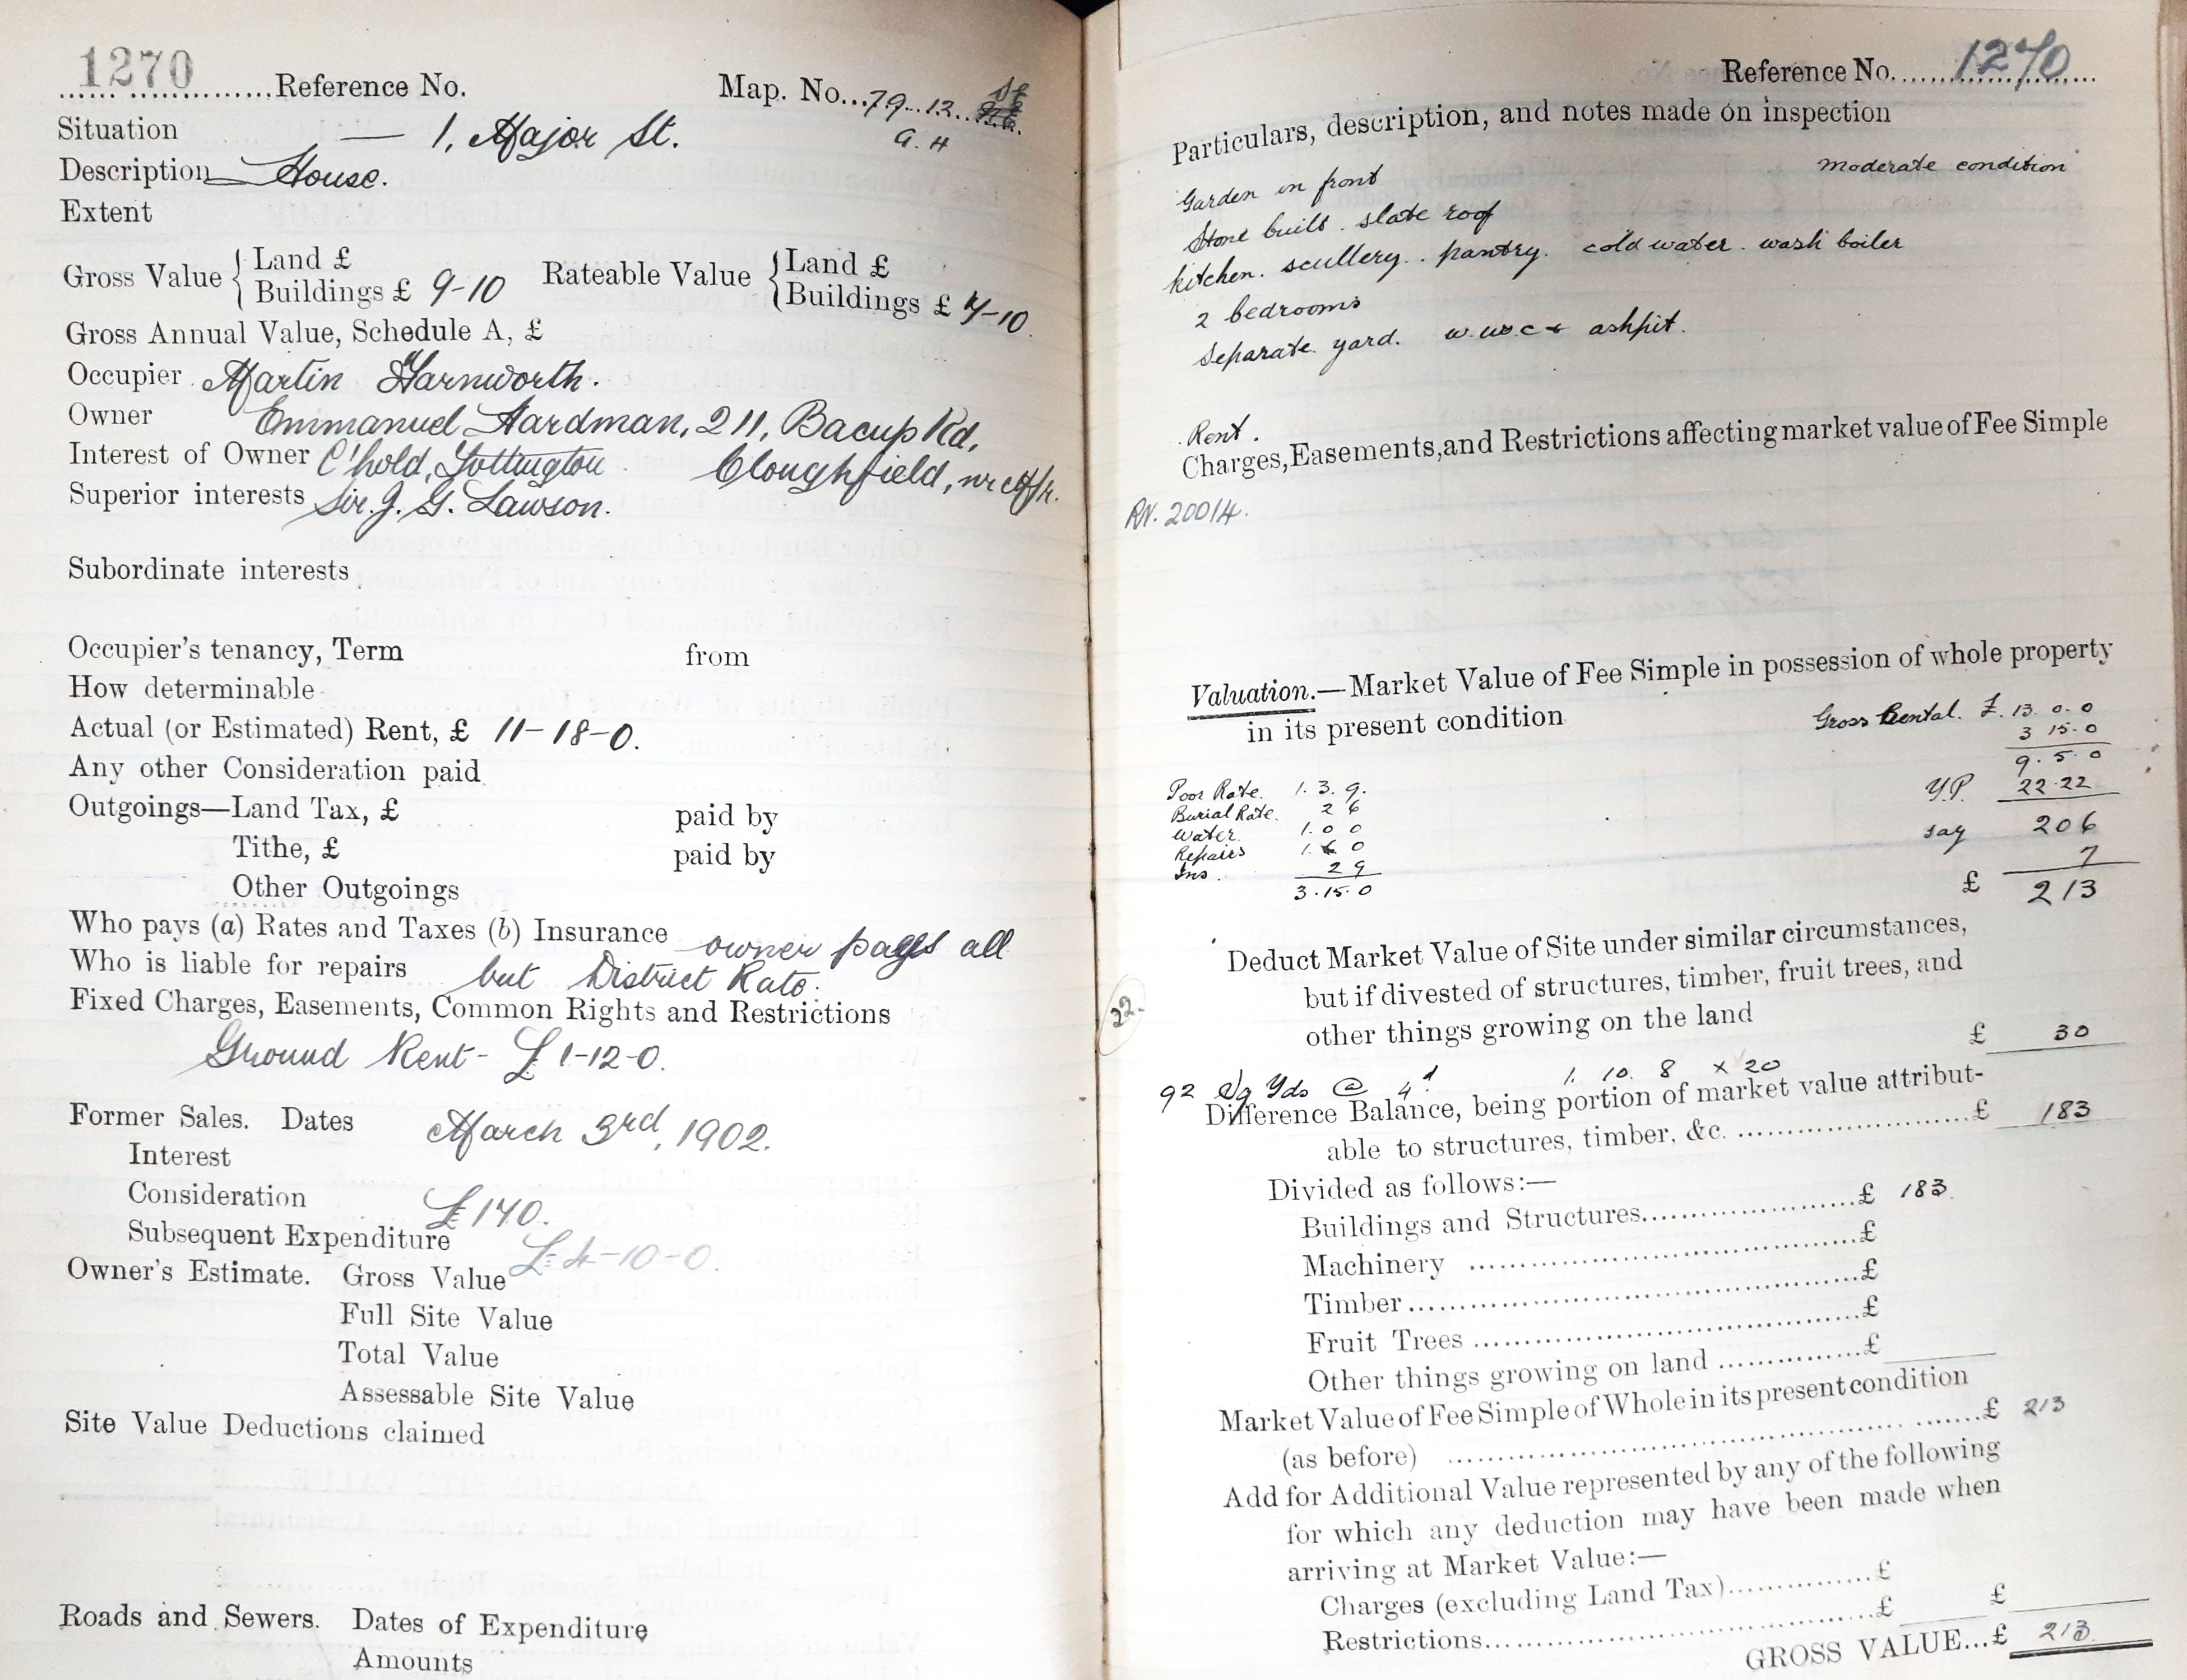 1270
...... ..............Reference No.
Map. No...79..12....
S.E.
G. H
Situation — 1, Major St.
Description House.
Extent
Gross Value { Land £
Buildings £ 9-10
Rateable Value { Land £
Buildings £ 7-10
Gross Annual Value, Schedule A, £
Occupier Martin Harnworth.
Owner Emmanuel Hardman, 211, Bacup Rd,
Interest of Owner C'hold, Tottington. Cloughfield, nr M/r.
Superior interests Sir. J. G. Lawson.
Subordinate interests
Occupier's tenancy, Term from
How determinable
Actual (or Estimated) Rent, £ 11-18-0.
Any other Consideration paid
Outgoings—Land Tax, £ paid by
Tithe, £ paid by
Other Outgoings
Who pays (a) Rates and Taxes (b) Insurance owner pays all
Who is liable for repairs but District Rate.
Fixed Charges, Easements, Common Rights and Restrictions
Ground Rent- £1-12-0.
Former Sales. Dates March 3rd, 1902.
Interest
Consideration £140.
Subsequent Expenditure
£4-10-0.
Owner's Estimate. Gross Value
Full Site Value
Total Value
Assessable Site Value
Site Value Deductions claimed
Roads and Sewers. Dates of Expenditure
Amounts
Reference No. 1270
Particulars, description, and notes made on inspection
moderate condition
Garden in front
Stone built. slate roof
kitchen. scullery.. pantry. cold water. wash boiler
2 bedrooms
Separate yard. w.w.c + ashpit.
Rent.
Charges, Easements, and Restrictions affecting market value of Fee Simple
RN. 200/4.
Valuation.—Market Value of Fee Simple in possession of whole property
in its present condition
Gross Rental. £. 13. 0. 0
3 15. 0
9. 5. 0
Y.P. 22.22
say 206
7
£ 213
Poor Rate. 1. 3. 9.
Burial Rate. 2 6
Water. 1. 0 0
Repairs 1. 6 0
Ins. 2 9
3. 15. 0
Deduct Market Value of Site under similar circumstances,
but if divested of structures, timber, fruit trees, and
other things growing on the land £ 30
22.
92 Sq Yds @ 4d 1. 10. 8 x 20
Difference Balance, being portion of market value attribut-
able to structures, timber, &c. ..............................£ 183
Divided as follows:—
Buildings and Structures.........................£ 183
Machinery .............................................£
Timber...................................................£
Fruit Trees .............................................£
Other things growing on land ................£
Market Value of Fee Simple of Whole in its present condition
(as before) ..............................................£ 213
Add for Additional Value represented by any of the following
for which any deduction may have been made when
arriving at Market Value:—
Charges (excluding Land Tax)................£
Restrictions............................................£ £
GROSS VALUE...£ 213